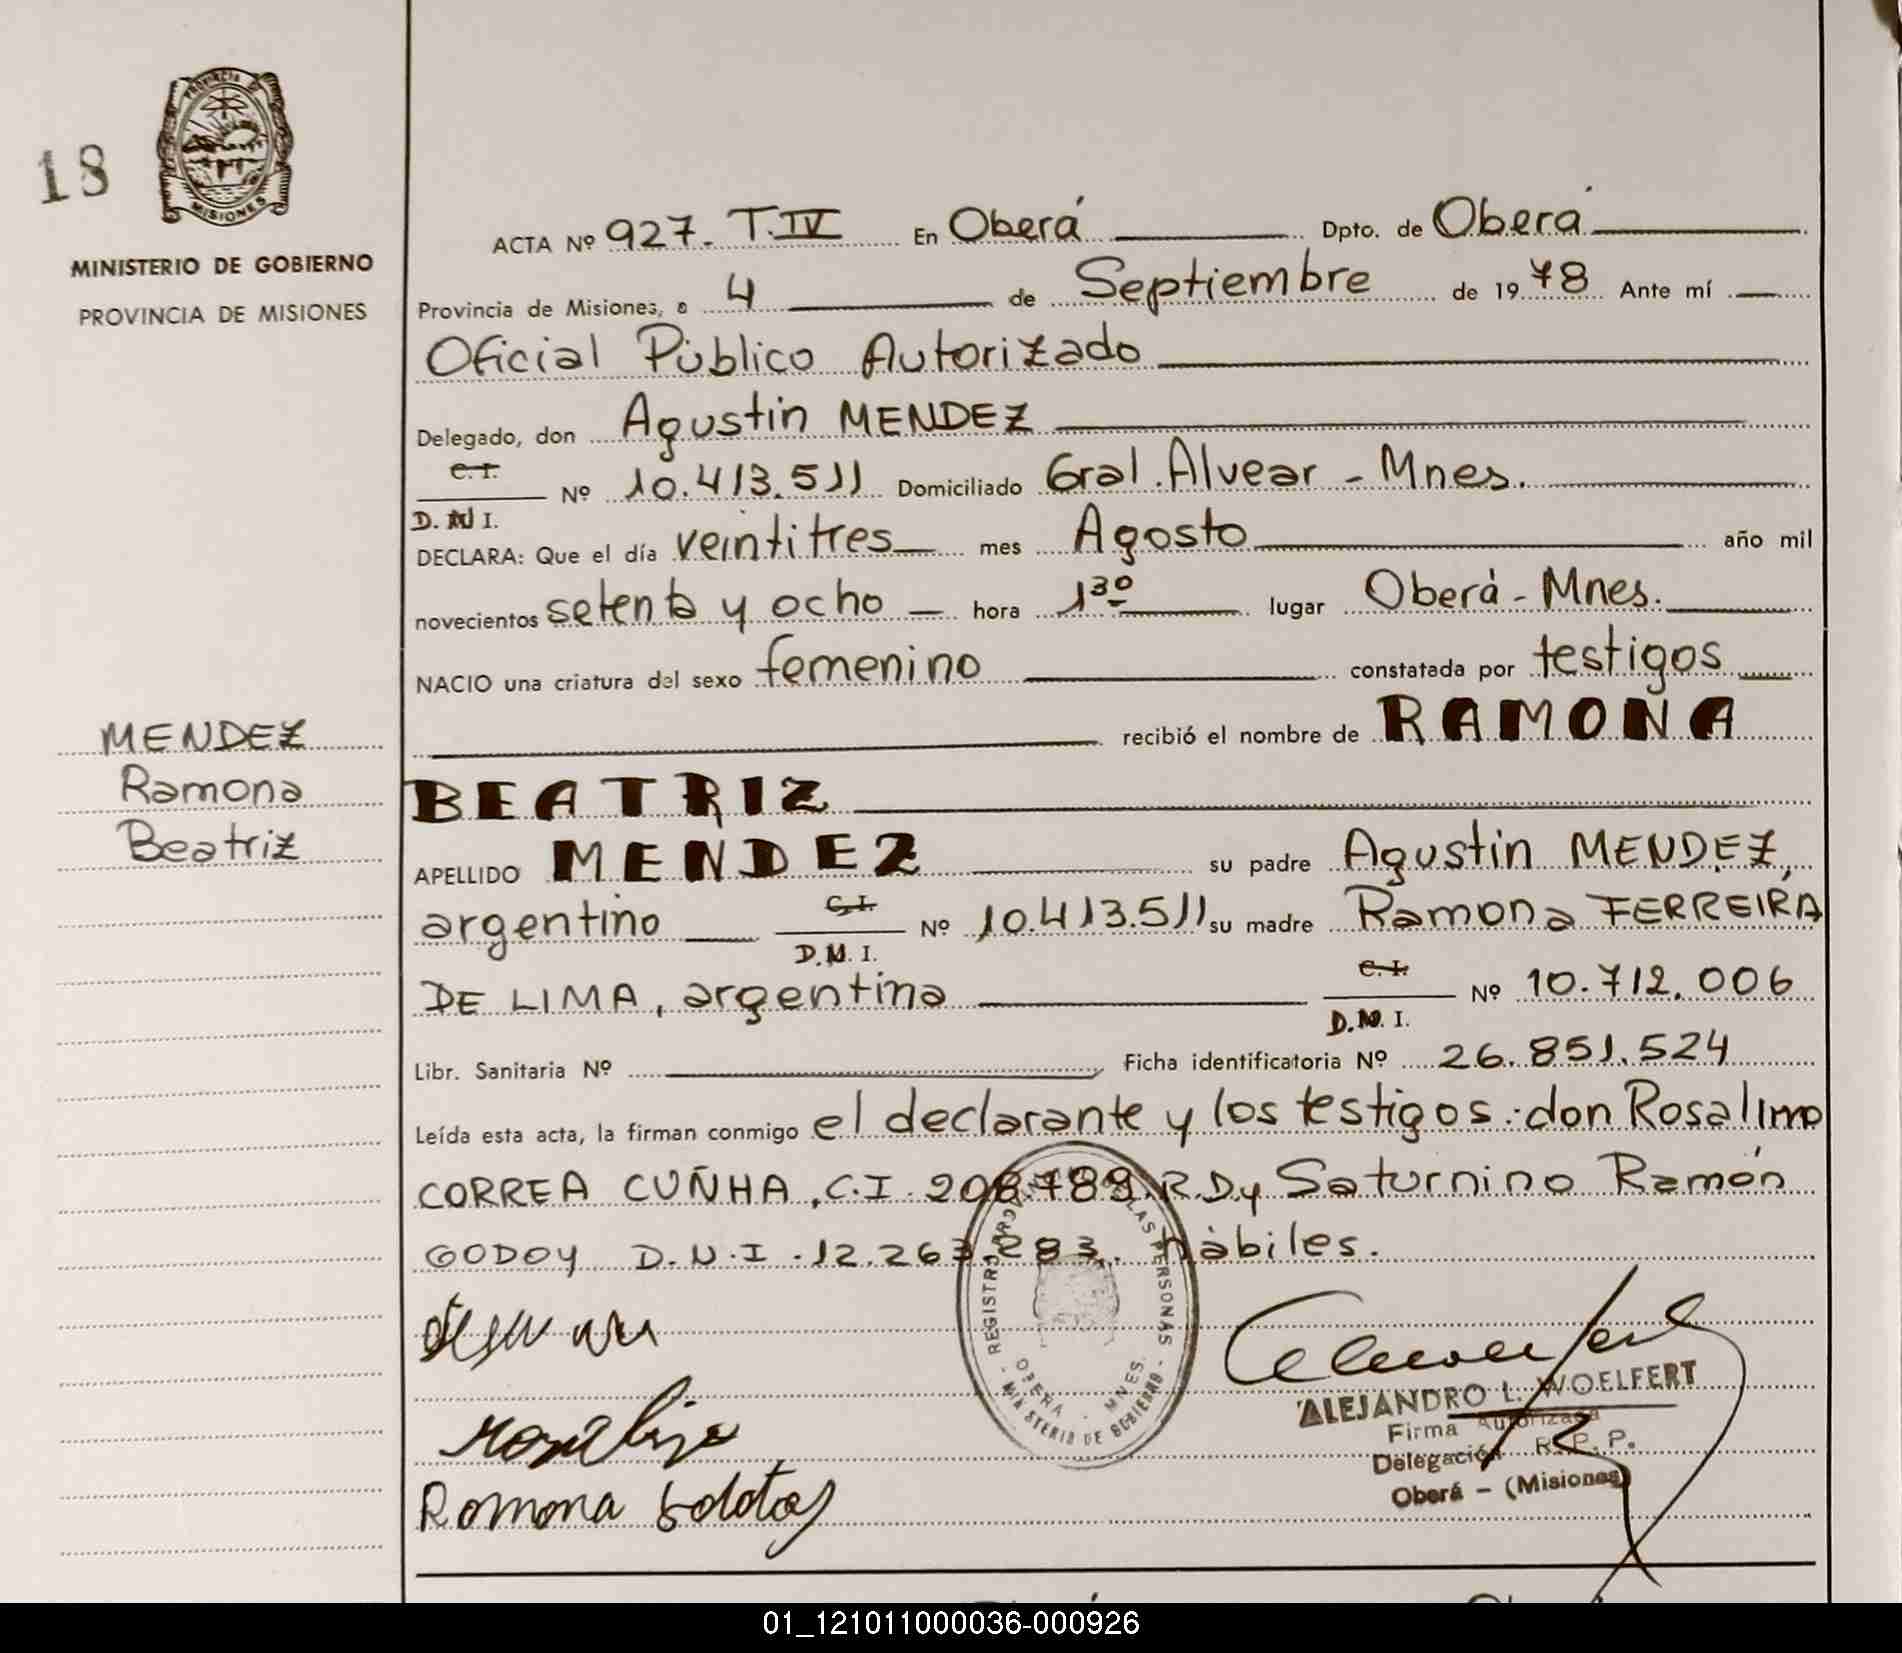 18
PROVINCIA DE
MISIONES
MINISTERIO DE GOBIERNO
PROVINCIA DE MISIONES
MENDEZ
Ramona
Beatriz
ACTA Nº 927. T.IV En Oberá Dpto. de Oberá
Provincia de Misiones, a 4 de Septiembre de 1978 Ante mí
Oficial Público Autorizado
Delegado, don Agustin MENDEZ
C.I.
D.N.I. Nº 10.413.511 Domiciliado Gral. Alvear - Mnes.
DECLARA: Que el día veintitres mes Agosto año mil
novecientos setenta y ocho hora 1³⁰ lugar Oberá - Mnes.
NACIO una criatura del sexo femenino constatada por testigos
recibió el nombre de RAMONA
BEATRIZ
APELLIDO MENDEZ su padre Agustin MENDEZ,
argentino C.I. D.N.I. Nº 10.413.511 su madre Ramona FERREIRA
DE LIMA, argentina C.I. D.N.I. Nº 10.712.006
Libr. Sanitaria Nº Ficha identificatoria Nº 26.851.524
Leída esta acta, la firman conmigo el declarante y los testigos: don Rosalino
CORREA CUÑHA, C.I. 208788 R.D y Saturnino Ramón
GODOY D.N.I. 12.263.283. hábiles.
REGISTRO PROVINCIAL DE LAS PERSONAS
OBERA - MNES.
MINISTERIO DE GOBIERNO
ALEJANDRO L. WOELFERT
Firma Autorizada
Delegación R. P. P.
Oberá - (Misiones)
Ramona
01_121011000036-000926